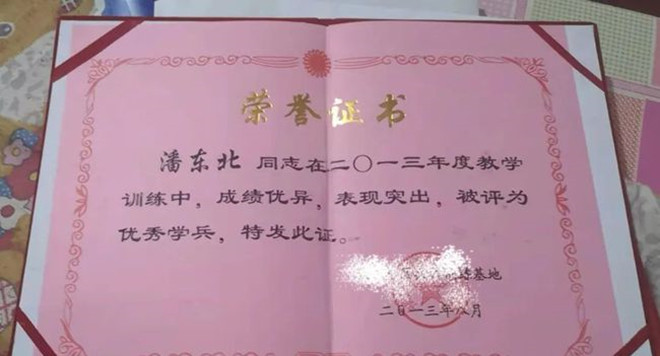 荣誉证书
潘东北 同志在二〇一三年度教学
训练中，成绩优异，表现突出，被评为
优秀学兵，特发此证。
基地
二〇一三年八月